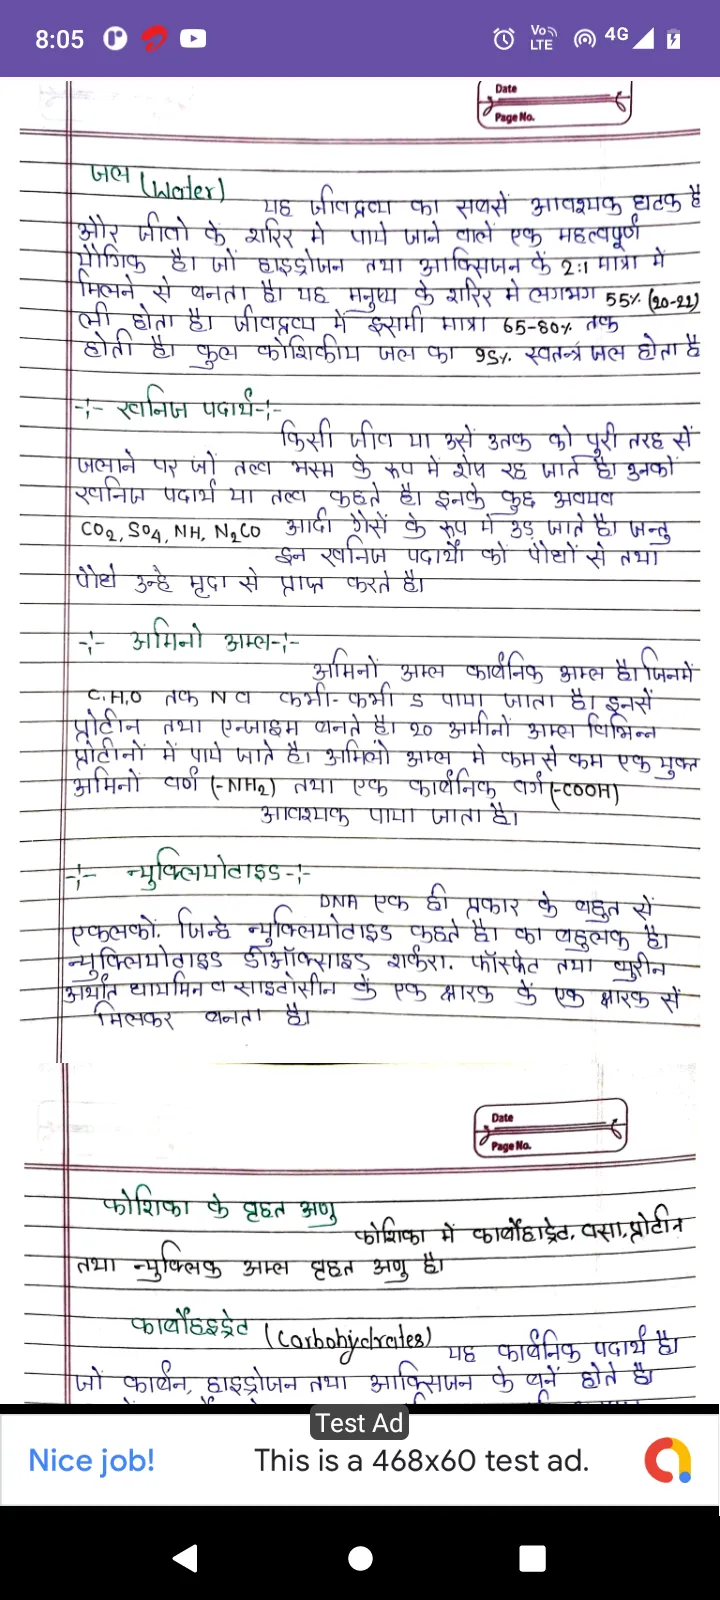 8:05
Vo LTE 4G
Date
Page No.
जल (Water)
यह जीवद्रव्य का सबसें आवश्यक घटक है
और जीवो के शरिर मे पाये जाने वालें एक महत्वपूर्ण
यौगिक है। जों हाइड्रोजन तथा आक्सिजन कें 2:1 मात्रा में
मिलने से बनता है। यह मनुष्य के शरिर मे लगभग 55% (20-22)
ली होता है। जीवद्रव्य में इसमी मात्रा 65-80% तक
होती है। कुल कोशिकीय जल का 95% स्वतन्त्र जल होता है
-:- खनिज पदार्थ-:-
किसी जीव या उसें उतक को पुरी तरह सें
जलाने पर जों तत्व भस्म के रूप में शेष रह जाते है। उनकों
खनिज पदार्थ या तत्व कहते है। इनके कुछ अवयव
CO2, SO4, NH, N2CO आदी गैसें के रूप में उड़ जाते है। जन्तु
इन खनिज पदार्थों कों पौधों से तथा
पौधे उन्हे मृदा से प्राप्त करते है।
-:- अमिनो अम्ल-:-
अमिनों अम्ल कार्बनिक अम्ल है। जिनमें
C.H,O तक N व कभी-कभी S पाया जाता है। इनसें
प्रोटीन तथा एन्जाइम बनते है। 20 अमीनों अम्ल विभिन्न
प्रोटीनों में पाये जाते है। अमिलो अम्ल मे कम से कम एक मुक्त
अमिनों वर्ण (-NH2) तथा एक कार्बनिक वर्ग (-COOH)
आवश्यक पाया जाता है।
-:- न्युक्लियोटाइड-:-
DNA एक ही प्रकार के बहुत सें
एकलकों. जिन्हे न्युक्लियोटाइड कहते है। का बहुलक है।
न्युक्लियोटाइड डीऑक्साइड शर्करा. फॉस्फेट तथा प्युरीन
अर्थात थायमिन व साइटोसीन कें एक क्षारक कें एक क्षारक सें
मिलकर बनता है।
Date
Page No.
कोशिका के वृहत अणु
कोशिका में कार्बोहाड्रेट, वसा, प्रोटीन
तथा न्युक्लिक अम्ल वृहत अणु है।
कार्बोहइड्रेट (Carbohydrates) यह कार्बनिक पदार्थ है।
जों कार्बन, हाइड्रोजन तथा आक्सिजन के बनें होते है।
Test Ad
Nice job! This is a 468x60 test ad.